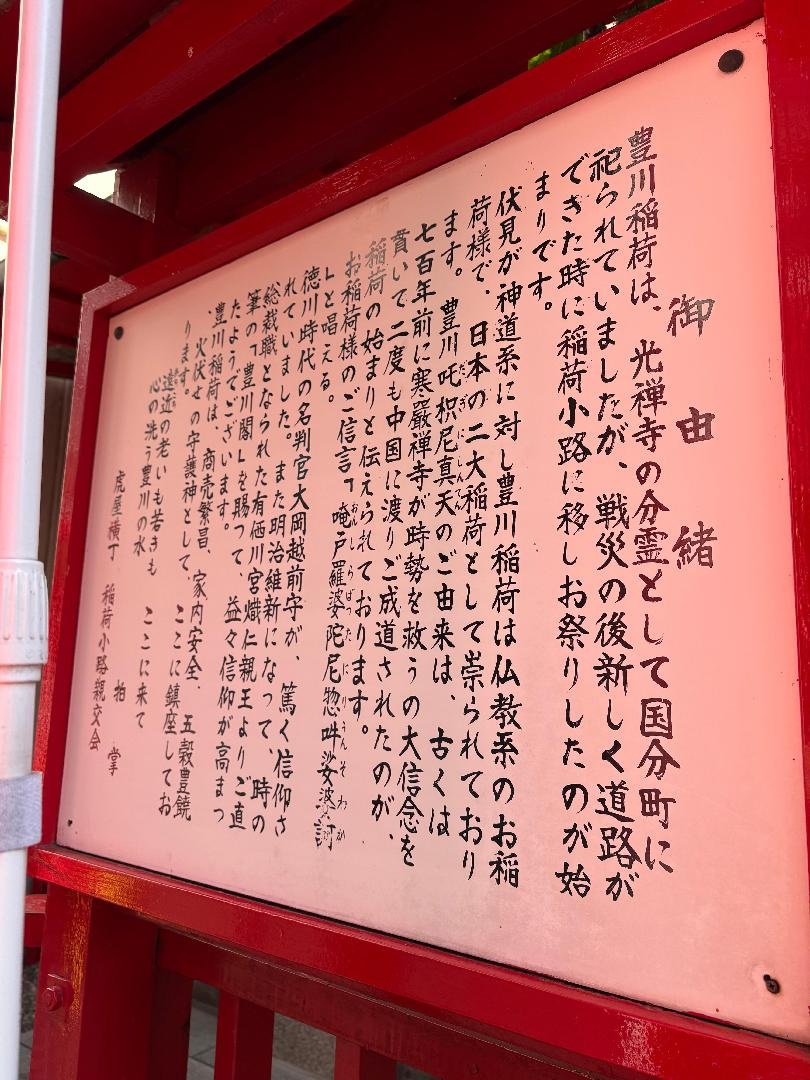 御由緒
豊川稲荷は、光禅寺の分霊として国分町に
祀られていましたが、戦災の後新しく道路が
できた時に稲荷小路に移しお祭りしたのが始
まりです。
伏見が神道系に対し豊川稲荷は仏教系のお稲
荷様で、日本の二大稲荷として崇られており
ます。豊川吒枳尼真天のご由来は、古くは
七百年前に寒巌禅寺が時勢を救うの大信念を
貫いて二度も中国に渡りご成道されたのが、
稲荷の始まりと伝えられております。
お稲荷様のご信言「唵尸羅婆陀尼惣吽娑婆訶
」と唱える。
徳川時代の名判官大岡越前守が、篤く信仰さ
れていました。また明治維新になって、時の
総裁職となられた有栖川宮熾仁親王よりご直
筆の「豊川閣」を賜って、益々信仰が高まつ
たようでございます。
豊川稲荷は、商売繁昌、家内安全、五穀豊饒
、火伏せの守護神として、ここに鎮座してお
ります。
遠近の老いも若きも ここに来て
心の洗う豊川の水
拍掌
虎屋横丁 稲荷小路親交会